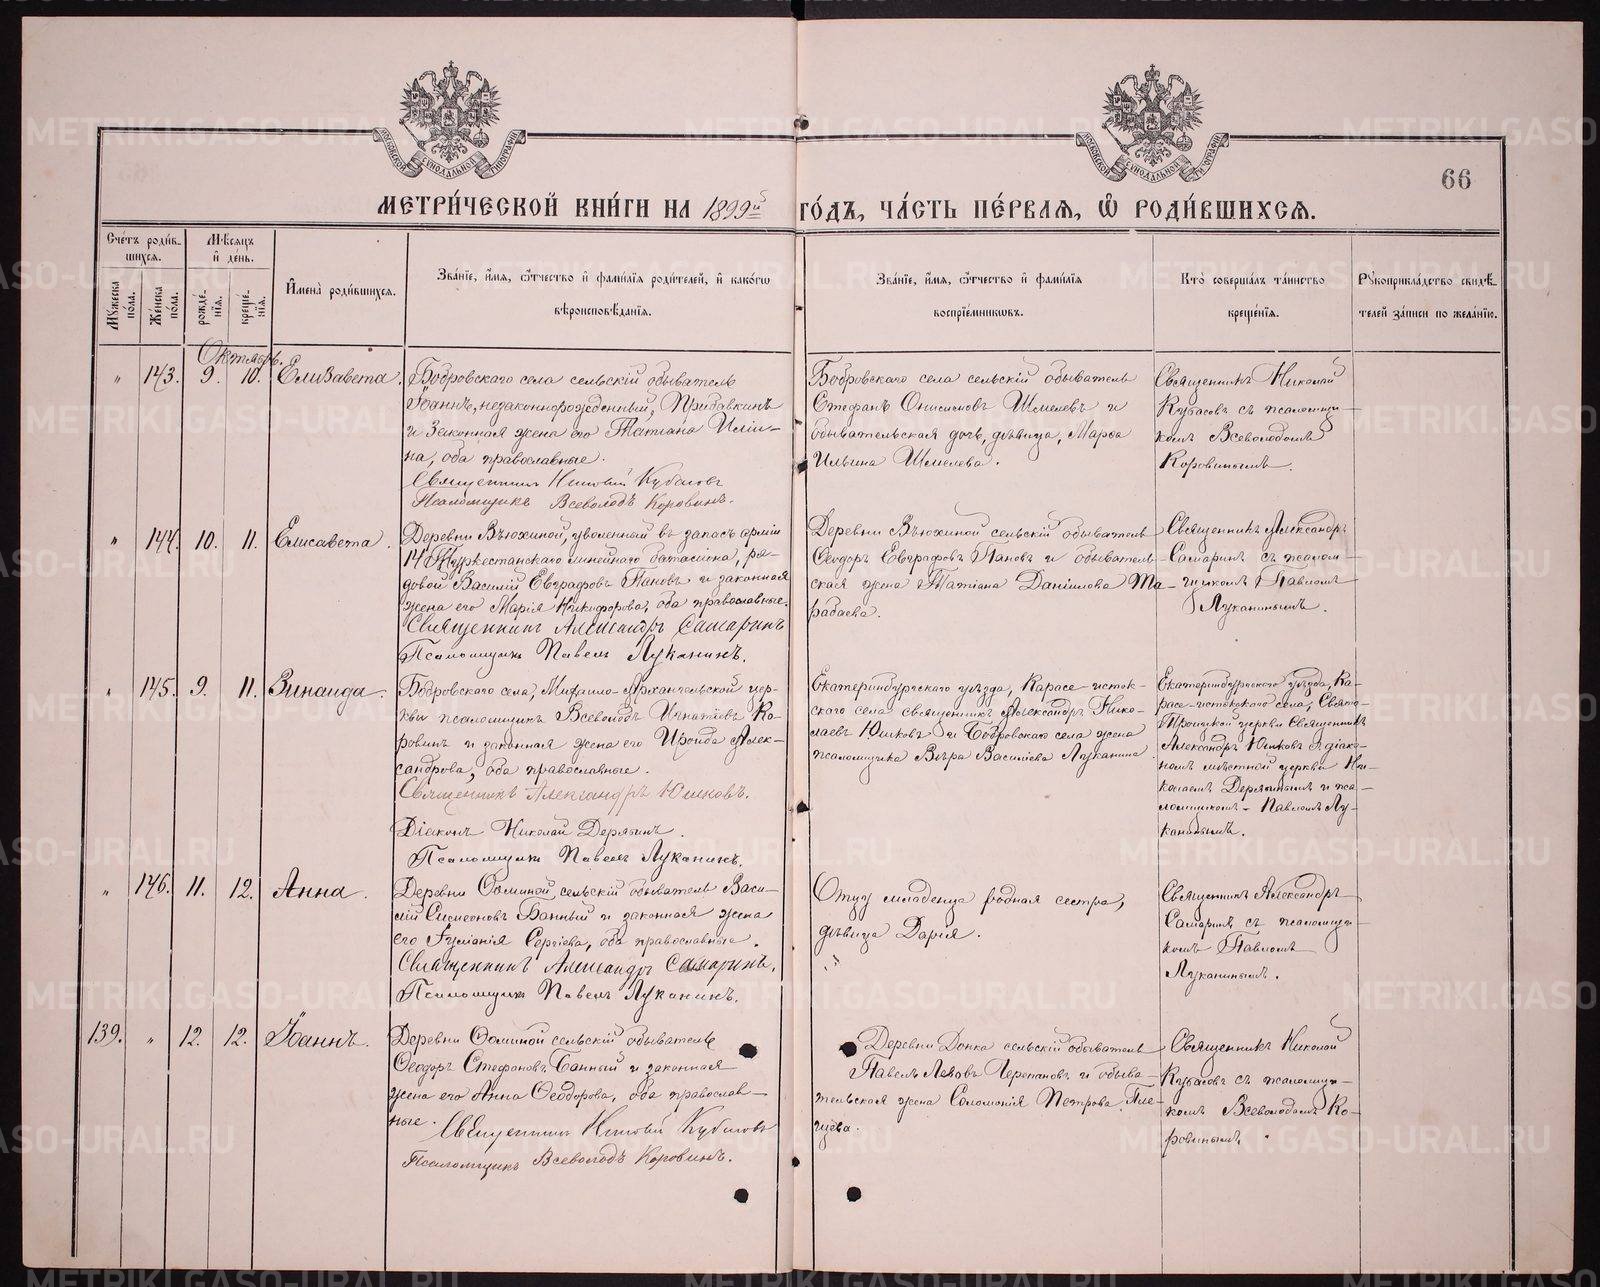 МОСКОВСКОЙ СУНОДАЛЬНОЙ ТИПОГРАФІИ
МОСКОВСКОЙ СУНОДАЛЬНОЙ ТИПОГРАФІИ
66
МЕТРИ́ЧЕСКОЙ КНИ́ГИ НА 1899й ГО́ДЪ, ЧА́СТЬ ПЕ́РВАЯ, Ѽ РОДИ́ВШИХСЯ.
Счетъ родив-
шихся.
Мѣсяцъ
и день.
Мужеска пола.
Женска пола.
рожде-
нія.
креще-
нія.
Имена родившихся.
Званіе, имя, отчество и фамилія родителей, и какогѡ
вѣроисповѣданія.
Званіе, имя, отчество и фамилія
воспріемниковъ.
Кто совершалъ таинство
крещенія.
Рукоприкладство свидѣ-
телей записи по желанію.
Октябрь.
" 143. 9. 10. Елизавета.
Бобровскаго села сельскій обыватель
Іоаннъ, незаконнорожденный, Прибавкинъ
и законная жена его Татіана Иліи-
на, оба православные.
Священникъ Николай Кубасовъ
Псаломщикъ Всеволодъ Коровинъ.
Бобровскаго села сельскій обыватель
Стефанъ Онисимовъ Шмелевъ и
обывательская дочь, дѣвица, Марѳа
Ильина Шмелева.
Священникъ Николай
Кубасовъ съ псаломщи-
комъ Всеволодомъ
Коровинымъ.
" 144. 10. 11. Елисавета.
Деревни Вьюхиной, уволенной въ запасъ арміи
14 Туркестанскаго линейнаго баталіона, ря-
довой Василій Евграфовъ Пановъ и законная
жена его Марія Никифорова, оба православные.
Священникъ Александръ Самаринъ
Псаломщикъ Павелъ Луканинъ.
Деревни Вьюхиной сельскій обыватель
Ѳеодоръ Евграфовъ Пановъ и обыватель-
ская жена Татіана Данилова Та-
рабаева.
Священникъ Александръ
Самаринъ съ псалом-
щикомъ Павломъ
Луканинымъ.
" 145. 9. 11. Зинаида.
Бобровскаго села, Михаило-Архангельской цер-
кви псаломщикъ Всеволодъ Игнатіевъ Ко-
ровинъ и законная жена его Ираида Алек-
сандрова, оба православные.
Священникъ Александръ Юшковъ.
Діаконъ Николай Дерябинъ.
Псаломщикъ Павелъ Луканинъ.
Екатеринбургскаго уѣзда, Карасе-исток-
скаго села священникъ Александръ Нико-
лаевъ Юшковъ и Бобровскаго села жена
псаломщика Вѣра Васильева Луканина
Екатеринбургскаго уѣзда, Ка-
расе-истокскаго села, Свято-
Троицкой церкви Священникъ
Александръ Юшковъ съ діако-
номъ мѣстной церкви Ни-
колаемъ Дерябинымъ и пса-
ломщикомъ - Павломъ Лу-
канинымъ.
" 146. 11. 12. Анна.
Деревни Ѳоминой, сельскій обыватель Васи-
лій Симеоновъ Банный и законная жена
его Іуліанія Сергіева, оба православные.
Священникъ Александръ Самаринъ.
Псаломщикъ Павелъ Луканинъ.
Отцу младенца родная сестра,
дѣвица Дарія.
Священникъ Александръ
Самаринъ съ псаломщи-
комъ Павломъ
Луканинымъ.
139. " 12. 12. Іоаннъ.
Деревни Ѳоминой сельскій обыватель
Ѳеодоръ Стефановъ Банный и законная
жена его Анна Ѳеодорова, оба православ-
ные.
Священникъ Николай Кубасовъ
Псаломщикъ Всеволодъ Коровинъ.
Деревни Донка сельскій обыватель
Павелъ Черепановъ и обыва-
тельская жена Соломонія Петрова
Священникъ Николай
Кубасовъ съ псаломщи-
комъ Всеволодомъ Ко-
ровинымъ.
METRIKI.GASO-URAL.RU